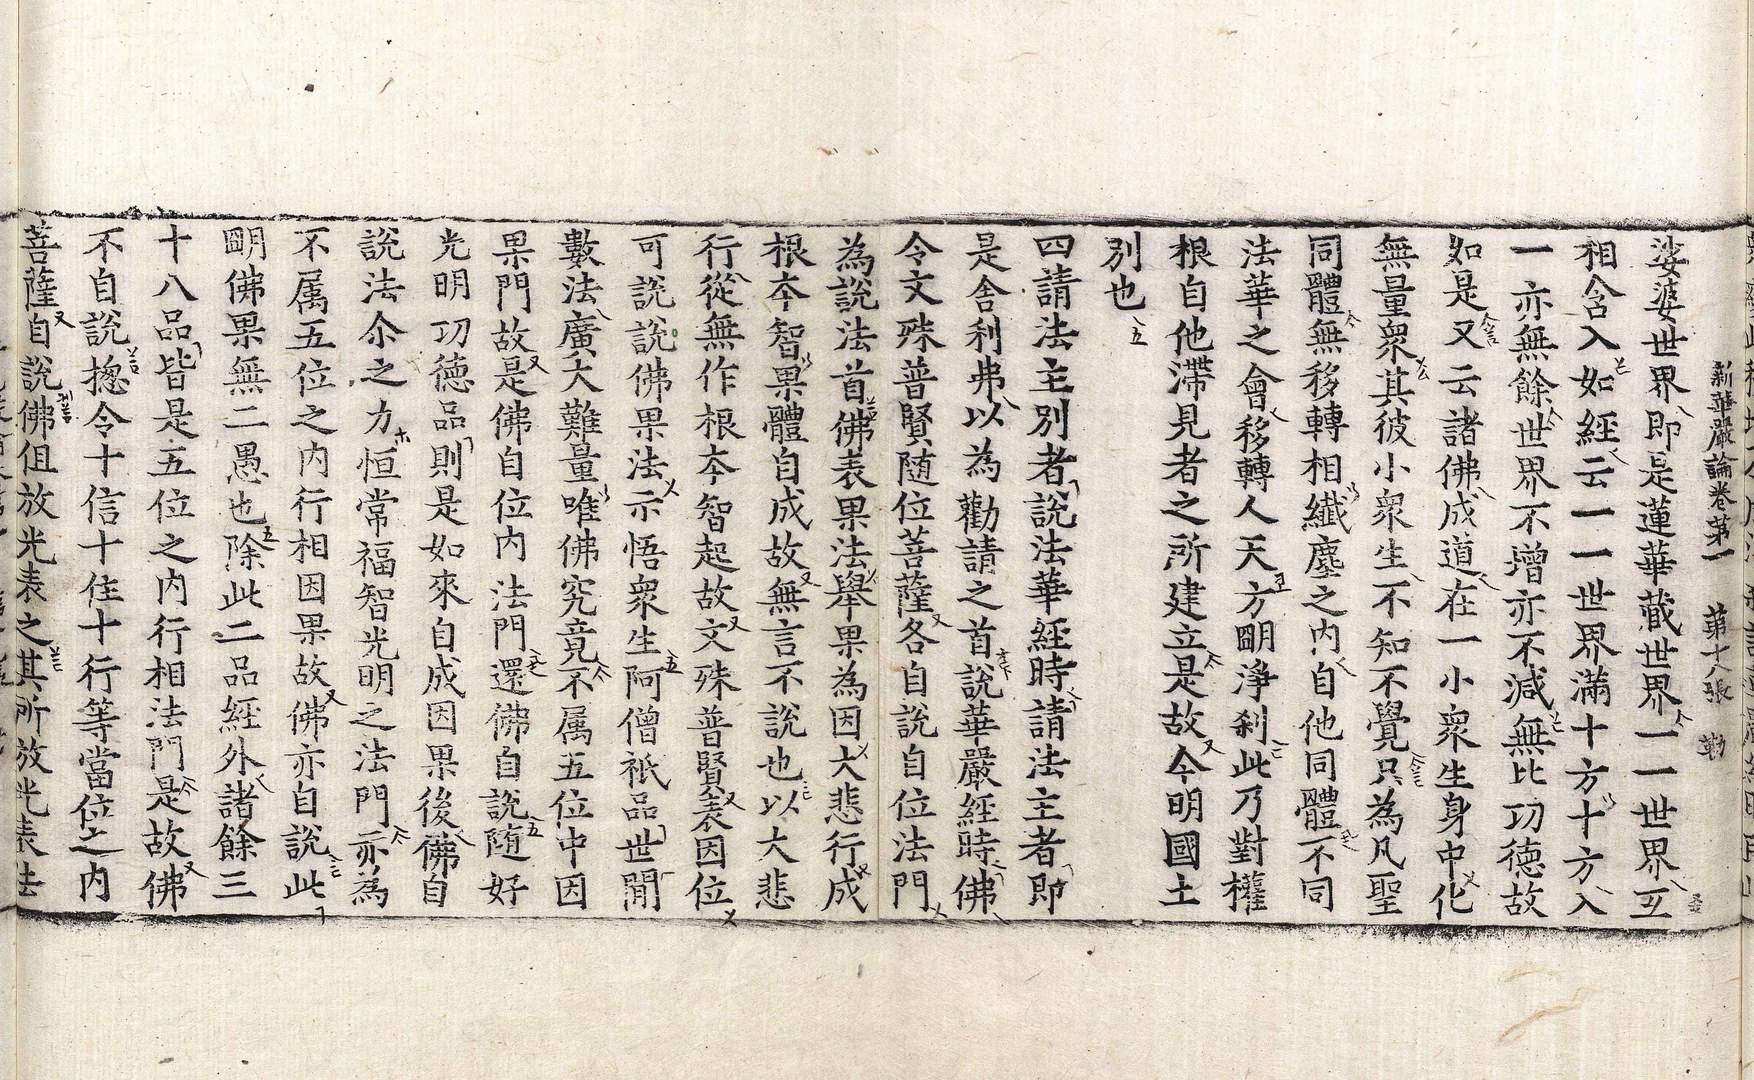 新華嚴論卷第一　第十八張　勒
娑婆世界即是蓮華藏世界一一世界互
相含入如經云一一世界滿十方十方入
一亦無餘世界不增亦不減無比功德故
如是又云諸佛成道在一小衆生身中化
無量衆其彼小衆生不知不覺只為凡聖
同體無移轉相纖塵之内自他同體不同
法華之會移轉人天方明淨刹此乃對權
根自他滯見者之所建立是故今明國土
別也
四請法主別者說法華經時請法主者即
是舍利弗以為勸請之首說華嚴經時佛
令文殊普賢随位菩薩各自說自位法門
為說法首佛表果法舉果為因大悲行成
根夲智果體自成故無言不說也以大悲
行從無作根夲智起故文殊普賢表因位
可說說佛果法示悟衆生阿僧祇品世間
數法廣大難量唯佛究竟不属五位中因
果門故是佛自位内法門還佛自說随好
光明功德品則是如來自成因果後佛自
說法尒之力恒常福智光明之法門亦為
不属五位之内行相因果故佛亦自說此
明佛果無二愚也除此二品經外諸餘三
十八品皆是五位之内行相法門是故佛
不自說揔令十信十住十行等當位之内
菩薩自說佛但放光表之其所放光表法